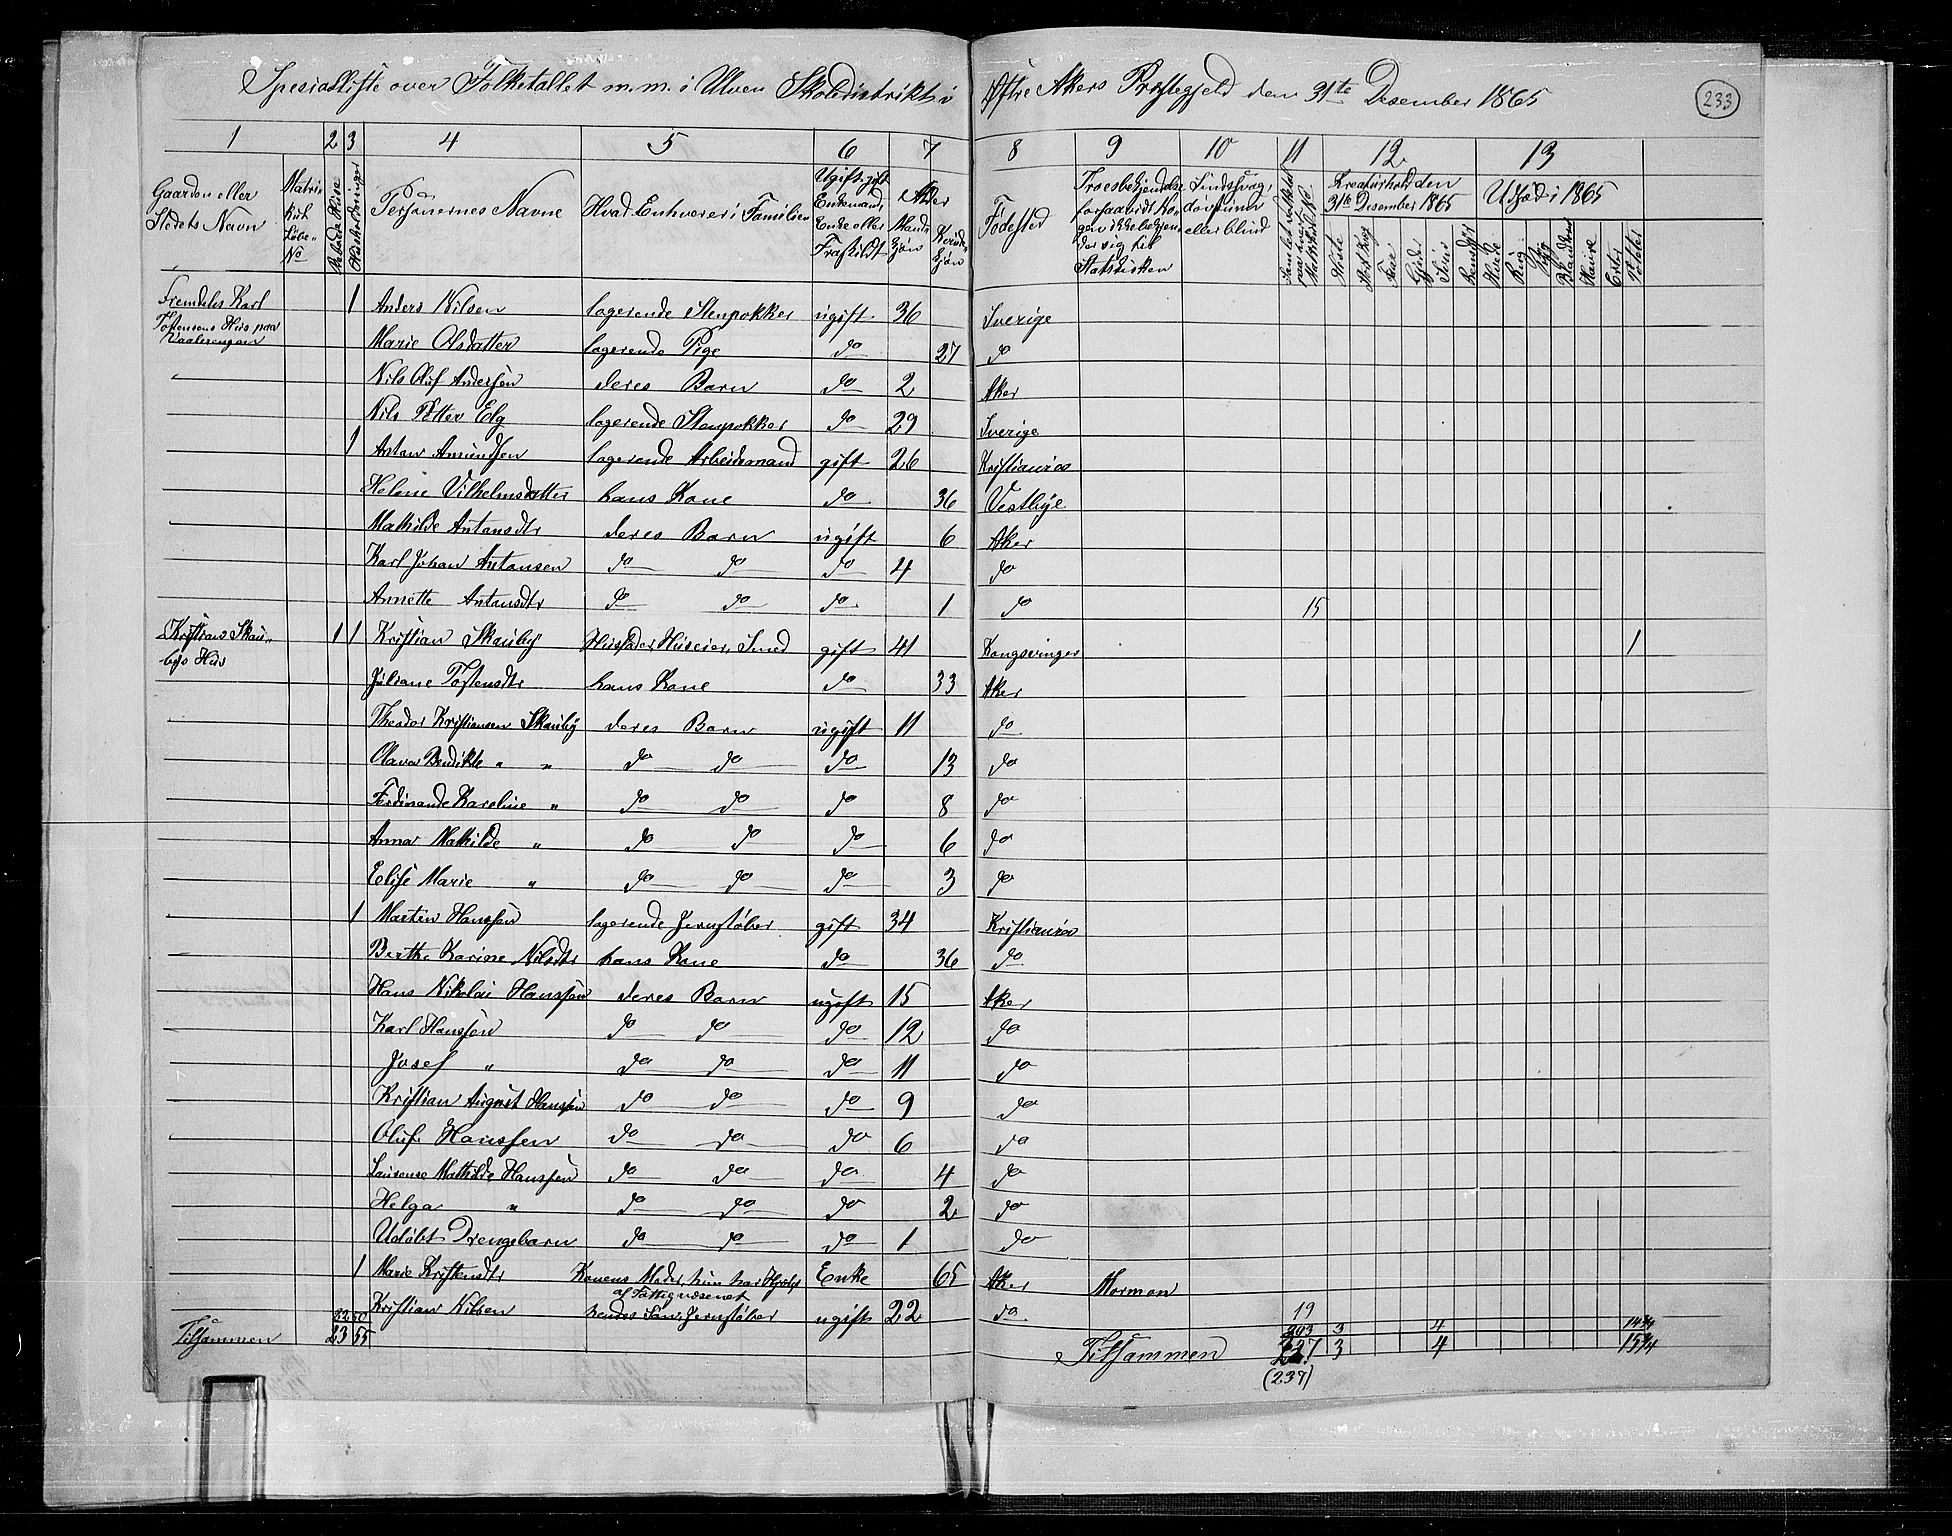 Spesialliste over Folketallet m.m. i Ulven Skoledistrikt i Østre Akers Præstegjeld den 31te Desember 1865
233
1 2 3 4 5 6 7 8 9 10 11 12 13
Gaardens eller Stedets Navn
Matrikul Løbe No
Bebode Huse
Husholdninger
Personernes Navne
Hvad Enhver er i Familien
Ugift, gift Enkemand, Enke eller Fraskildt
Alder
Mands Kjøn
Kvinde Kjøn
Fødested
Troesbekjendelse forsaavidt Nogen ikke bekjender sig til Statskirken
Sindssvag, døvstum eller blind
Kreaturhold den 31te Desember 1865
Udsæd i 1865
Heste
Stort Kvæg
Faar
Gjeder
Sviin
Rensdyr
Hvede
Rug
Byg
Blandkorn
Havre
Erter
Poteter
Fremdeles Karl Tostensens Hus paa Vaalerengen 1 Anders Nilsen logerende Stenpokker ugift 36 Sverige
Marie Olsdatter logerende Pige do 27 do
Nils Oluf Andersen deres Barn do 2 Aker
Nils Petter Elg logerende Stenpokker do 29 Sverige
1 Anton Amundsen logerende Arbeidsmand gift 26 Kristiania
Helene Vilhelmsdatter hans Kone do 36 Vestbye
Mathilde Antonsdtr deres Barn ugift 6 Aker
Karl Johan Antonsen do do do 4 do
Annette Antonsdtr do do do 1 do 15
Kristians Skaubys Hus 1 1 Kristian Skauby Husfader, Huseier, Smed gift 41 Kongsvinger 1
Juliane Tostensdtr hans Kone do 33 Aker
Theodor Kristiansen Skauby deres Barn ugift 11 do
Olava Bendikte " " do do do 13 do
Ferdinande Karoline " do do do 8 do
Anna Mathilde " do do do 6 do
Elise Marie " do do do 3 do
1 Martin Hanssen logerende Jernstøber gift 34 Kristiania
Berthe Karine Nilsdtr hans Kone do 36 do
Hans Nikolai Hanssen deres Barn ugift 15 Aker
Karl Hanssen do do do 12 do
Josef " do do do 11 do
Kristian August Hanssen do do do 9 do
Oluf Hanssen do do do 6 do
Laurense Mathilde Hanssen do do do 4 do
Helga " do do do 2 do
Udøbt Drengebarn do do do 1 do
1 Marie Kristensdtr Konens Moder, hun har Hjælp af Fattigvæsenet Enke 65 Aker Mormon
Kristian Nilsen hendes Søn, Jernstøber ugift 22 do 19
22 50 203 3 4 14 3/4
Tilsammen 23 55 Tilsammen 237 3 4 15 3/4
(237)